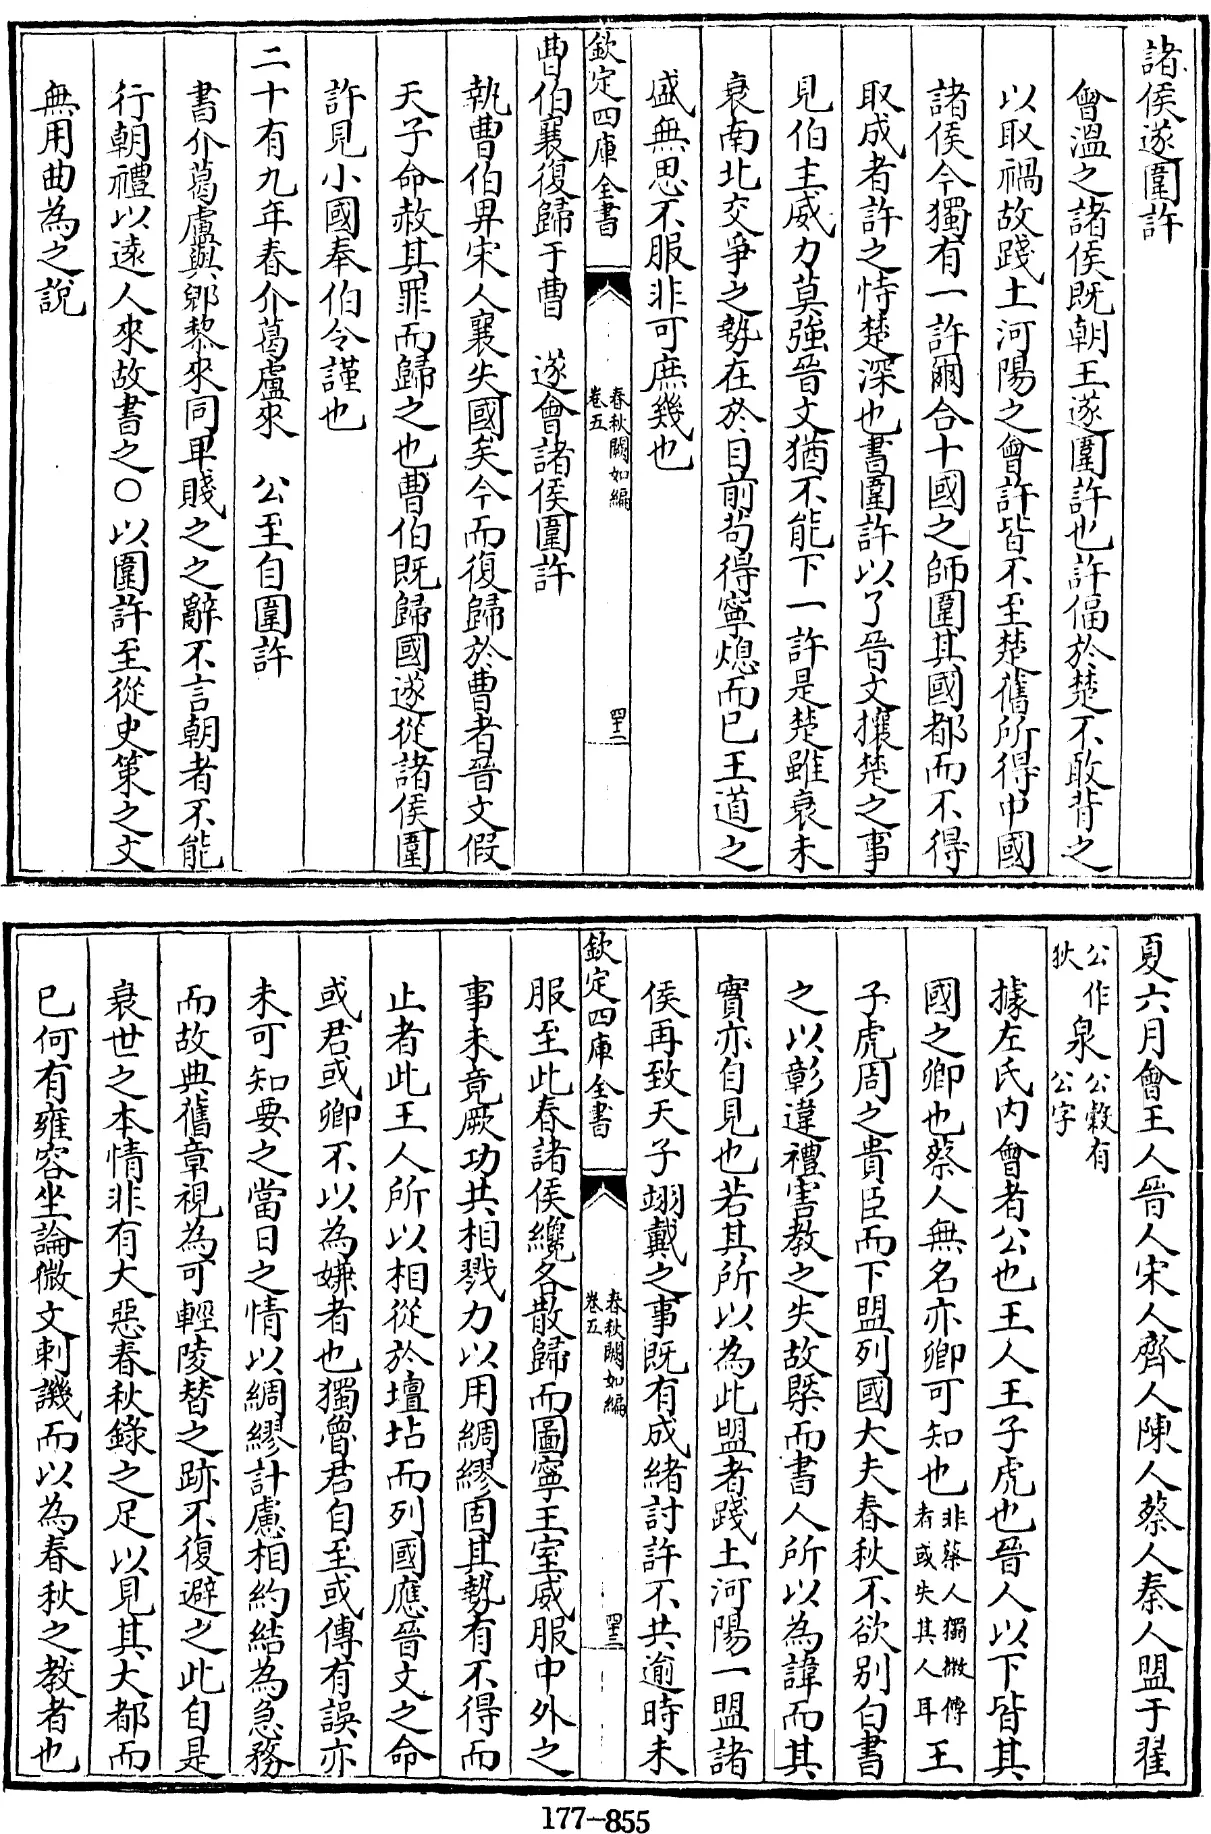 諸侯遂圍許
會溫之諸侯既朝王遂圍許也許偪於楚不敢背之
以取禍故踐土河陽之會許皆不至楚舊所得中國
諸侯今獨有一許爾合十國之師圍其國都而不得
取成者許之恃楚深也書圍許以了晉文攘楚之事
見伯主威力莫強晉文猶不能下一許是楚雖衰未
衰南北交爭之勢在於目前茍得寧熄而已王道之
盛無思不服非可庶幾也
欽定四庫全書
春秋闕如編
卷五
四十二
曹伯襄復歸于曹 遂會諸侯圍許
執曹伯畀宋人襄失國矣今而復歸於曹者晉文假
天子命赦其罪而歸之也曹伯既歸國遂從諸侯圍
許見小國奉伯令謹也
二十有九年春介葛盧來 公至自圍許
書介葛盧與郳黎來同卑賤之之辭不言朝者不能
行朝禮以遠人來故書之○以圍許至從史第之文
無用曲為之說
夏六月會王人晉人宋人齊人陳人蔡人秦人盟于翟
公作
狄
泉
公穀有
公字
據左氏內會者公也王人王子虎也晉人以下皆其
國之卿也蔡人無名亦卿可知也
非蔡人獨微傳
者或失其人耳
王
子虎周之貴臣而下盟列國大夫春秋不欲別白書
之以彰違禮害教之失故槩而書人所以為諱而其
實亦自見也若其所以為此盟者踐土河陽一盟諸
侯再致天子翊戴之事既有成緒討許不共逾時未
欽定四庫全書
春秋闕如編
卷五
四十三
服至此春諸侯纔各散歸而圖寧王室威服中外之
事未竟厥功共相戮力以用綢繆固其勢有不得而
止者此王人所以相從於壇坫而列國應晉文之命
或君或卿不以為嫌者也獨魯君自至或傳有誤亦
未可知要之當日之情以綢繆計慮相約結為急務
而故典舊章視為可輕陵替之跡不復避之此自是
衰世之本情非有大惡春秋錄之足以見其大都而
已何有雍容坐論微文刺譏而以為春秋之教者也
177-855